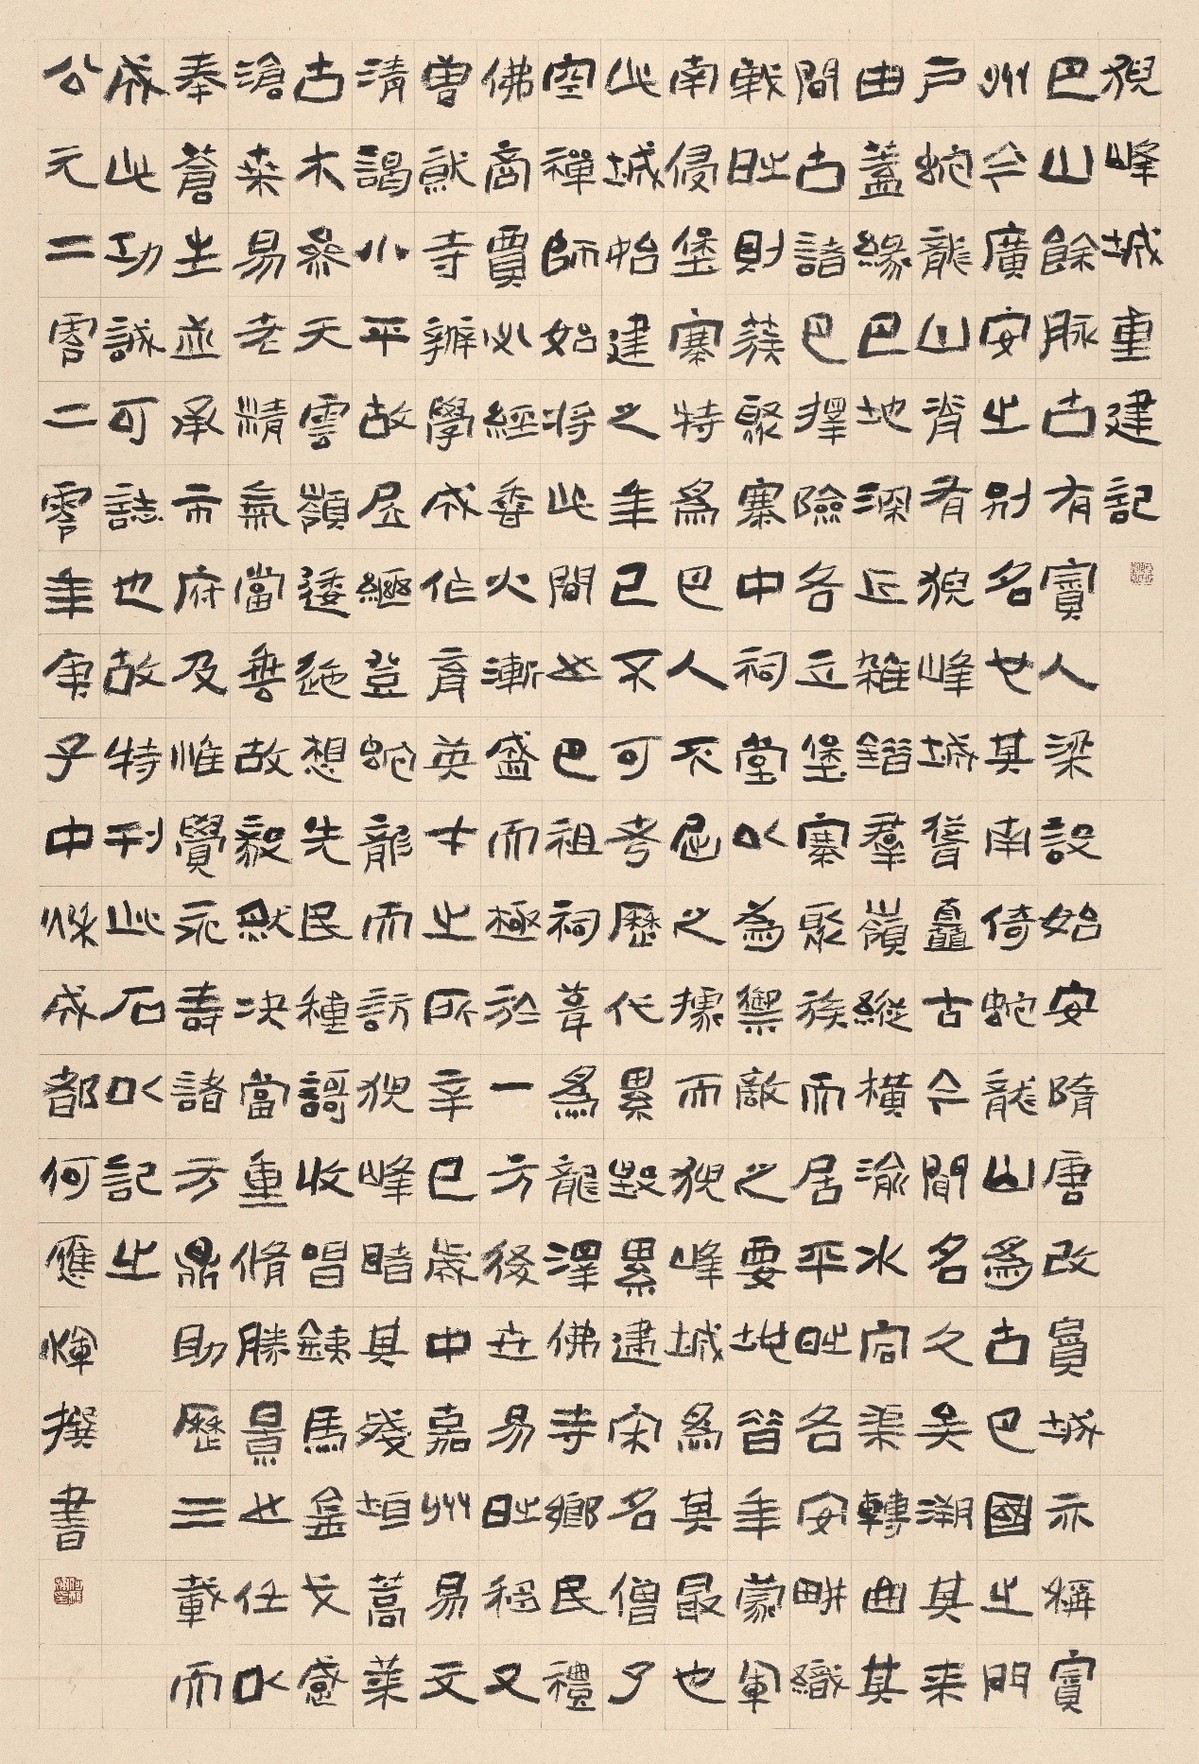 猊峰城重建記
巴山餘脉古有賨人梁設始安隋唐改賨城亦稱賨
州今廣安之别名也其南倚蛇龍山爲古巴國之門
户蛇龍山脊有猊峰城聳矗古今聞名久矣溯其来
由蓋緣巴地深丘雜錯羣嶺縱横渝水宕渠轉曲其
間古諸巴擇險各立堡寨聚族而居平時各安耕織
戰時則蔟聚寨中祠堂以為禦敵之要地昔年蒙軍
南侵堡寨特爲巴人不屈之據而猊峰城爲其最也
此城始建之年已不可考歷代累毀累建宋名僧了
空禪師始将此間也巴祖祠葺爲龍澤佛寺鄉民禮
佛商賈必經香火漸盛而極於一方後世易時移又
曾就寺辦學成作育英才之所辛巳歲中嘉州易文
清謁小平故居繼登蛇龍而訪猊峰睹其殘垣蒿萊
古木參天雲嶺逶迤想先民種謌收唱鐵馬金戈感
滄桒易老精氣當無故毅然决當重脩勝景也任以
奉蒼生並承市府及惟覺永壽諸方鼎助歷三載而
成此功誠可誌也故特刊此石以記之
公元二零二零年庚子中秋成都何應煇撰書